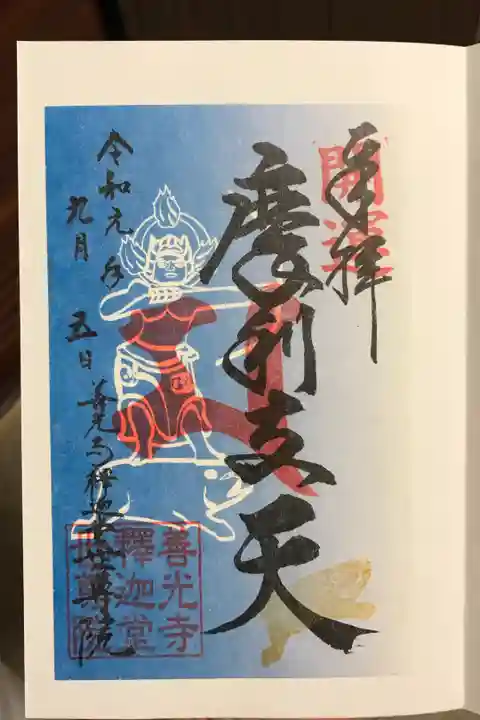 奉拝
開運
摩利支天
令和元年
九月
五日
善光寺釋迦堂世尊院
善光寺
釋迦堂
世尊院